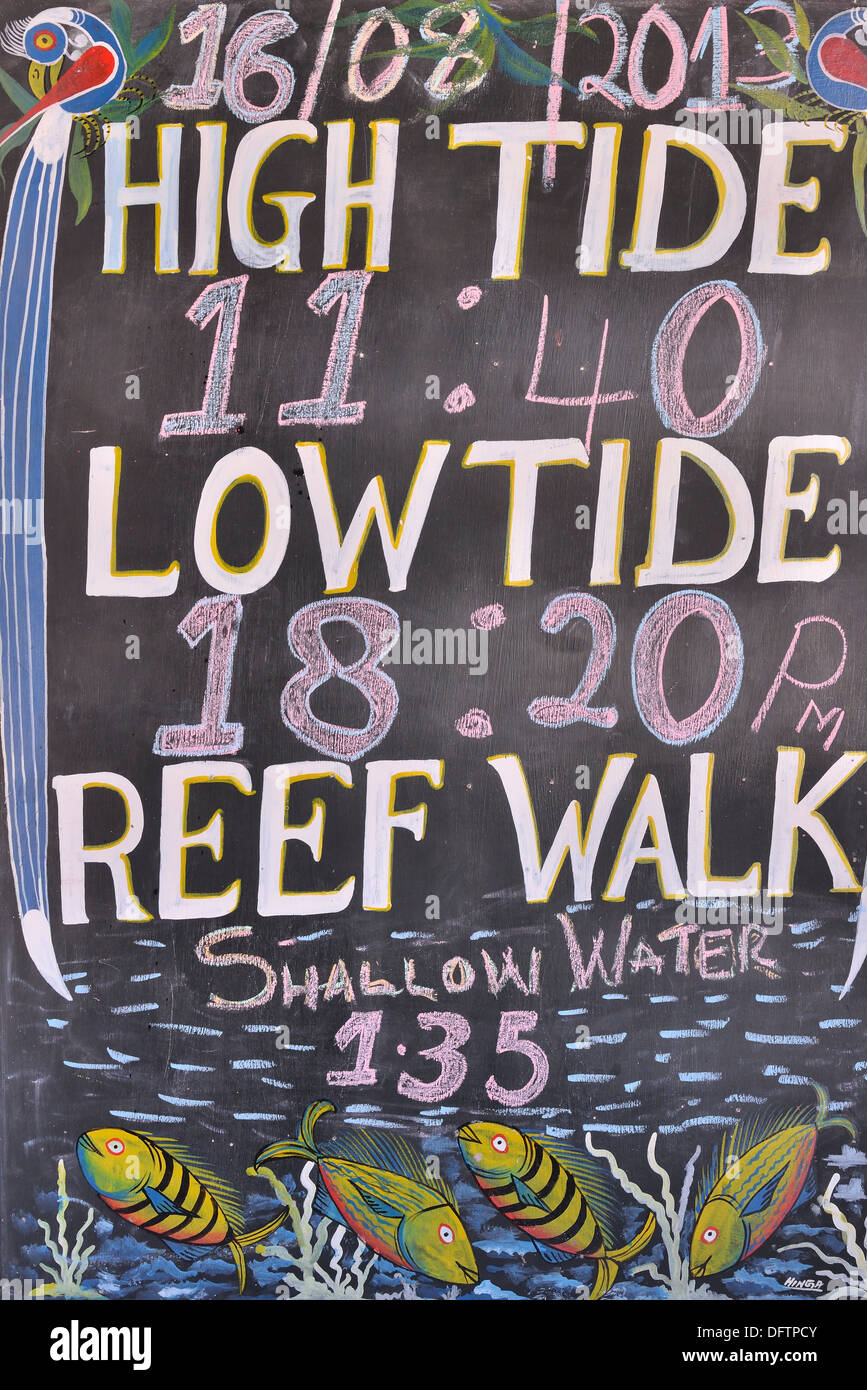 16/08/2013
HIGH TIDE
11:40
LOW TIDE
18:20 PM
REEF WALK
SHALLOW WATER
1.35
HINGA
alamy
Image ID: DFTPCY
www.alamy.com